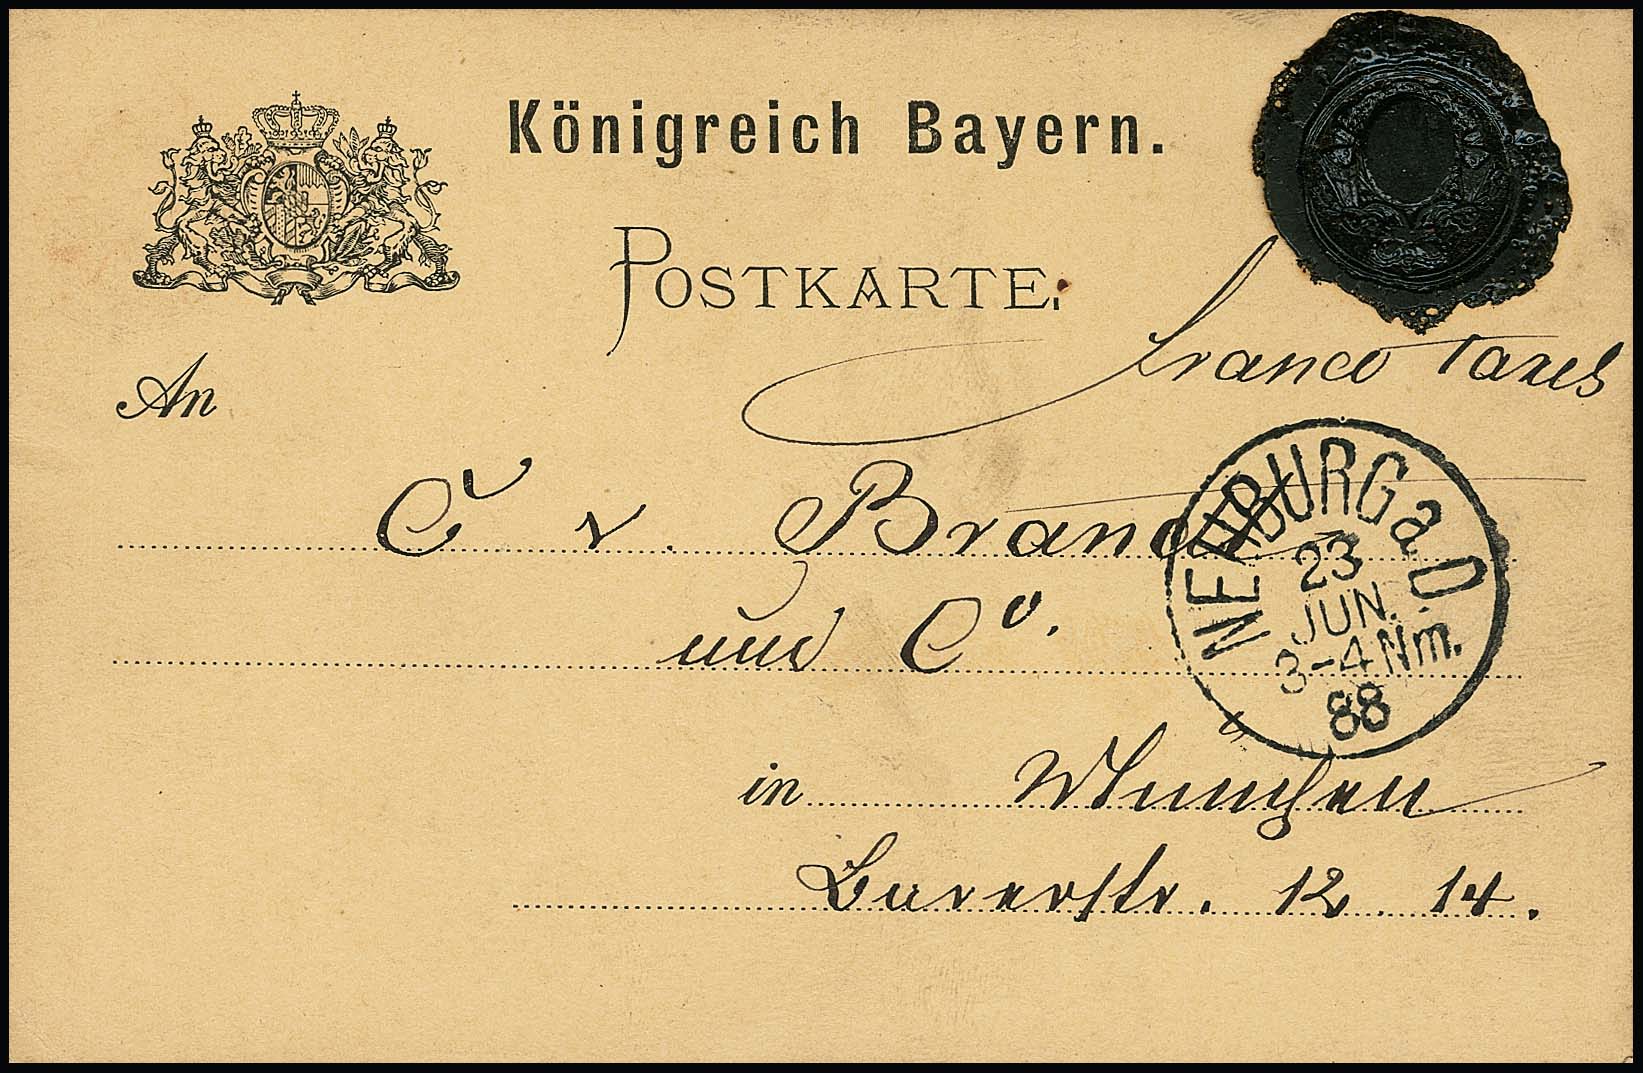 Königreich Bayern.
POSTKARTE.
franco Taxes
An
C v. Brand
und Co.
in München
Barerstr. 12. 14.
NEUBURG a. D.
23
JUN.
3-4 Nm.
88